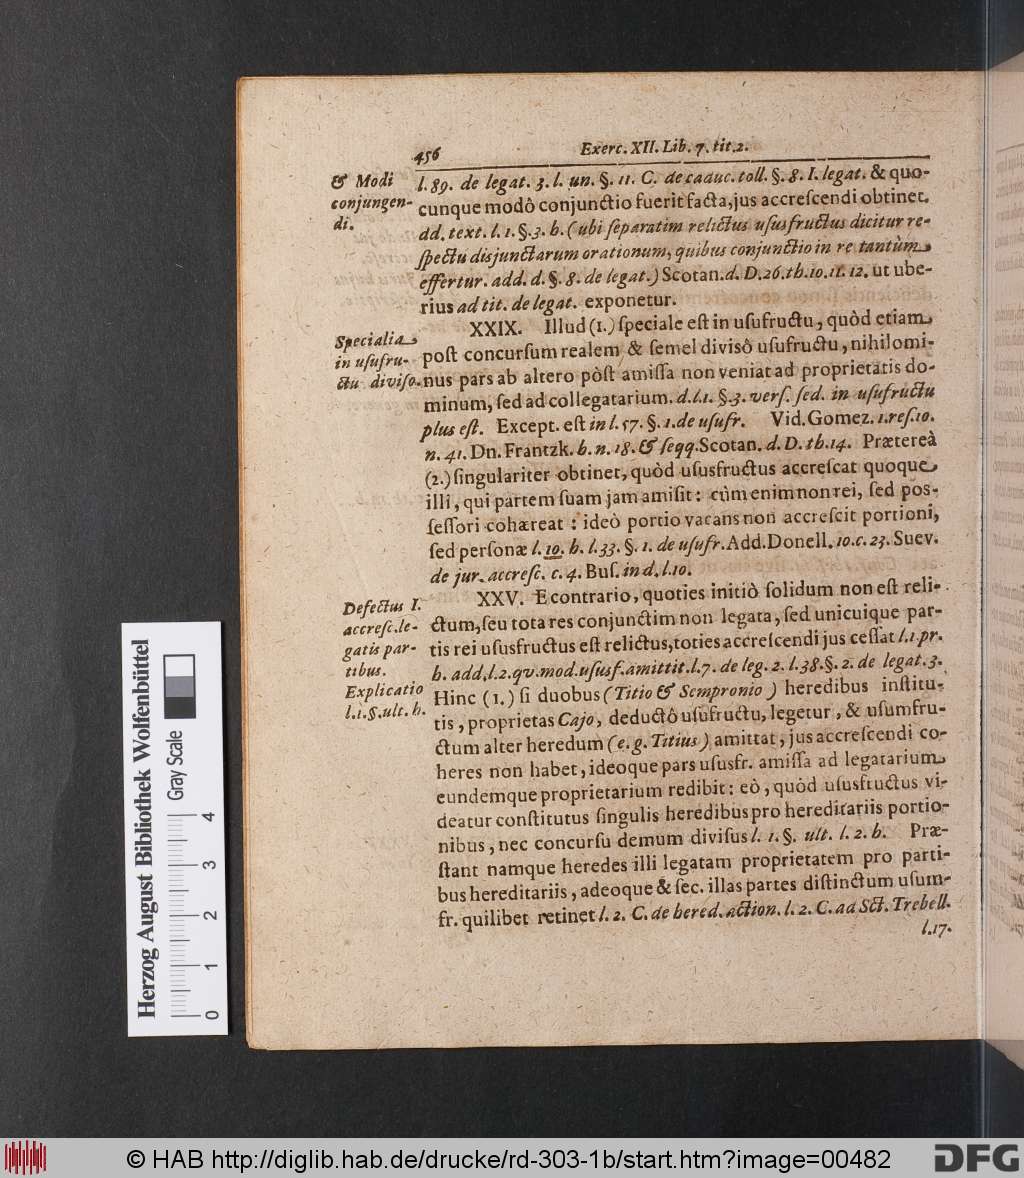 456 Exerc. XII. Lib. 7. tit. 2.
& Modi
conjungen-
di.
l. 89. de legat. 3. l. un. §. 11. C. de caduc. toll. §. 8. I. legat. & quo-
cunque modô conjunctio fuerit facta, jus accreſcendi obtinet.
dd. text. l. 1. §. 3. h. (ubi ſeparatim relictus uſusfructus dicitur re-
ſpectu disjunctarum orationum, quibus conjunctio in re tantùm
effertur. add. d. §. 8. de legat.) Scotan. d. D. 26. th. 10. 11. 12. ut ube-
rius ad tit. de legat. exponetur.
Specialia
in uſufru-
ctu diviſo.
XXIX. Illud (1.) ſpeciale eſt in uſufructu, quòd etiam
poſt concurſum realem & ſemel diviſô uſufructu, nihilomi-
nus pars ab altero pòſt amiſſa non veniat ad proprietatis do-
minum, ſed ad collegatarium. d. l. 1. §. 3. verſ. ſed. in uſufructu
plus eſt. Except. eſt in l. 57. §. 1. de uſufr. Vid. Gomez. 1. reſ. 10.
n. 41. Dn. Frantzk. h. n. 18. & ſeqq. Scotan. d. D. th. 14. Prætereà
(2.) ſingulariter obtinet, quòd uſusfructus accreſcat quoque
illi, qui partem ſuam jam amiſit: cùm enim non rei, ſed poſ-
ſeſſori cohæreat: ideò portio vacans non accreſcit portioni,
ſed perſonæ l. 10. h. l. 33. §. 1. de uſufr. Add. Donell. 10. c. 23. Suev.
de jur. accreſc. c. 4. Buſ. in d. l. 10.
Defectus I.
accreſc. le-
gatis par-
tibus.
Explicatio
l. 1. §. ult. h.
XXV. E contrario, quoties initiò ſolidum non eſt reli-
ctum, ſeu tota res conjunctim non legata, ſed unicuique par-
tis rei uſusfructus eſt relictus, toties accreſcendi jus ceſſat l. 1. pr.
h. add. l. 2. qv. mod. uſusf. amittit. l. 7. de leg. 2. l. 38. §. 2. de legat. 3.
Hinc (1.) ſi duobus (Titio & Sempronio) heredibus inſtitu-
tis, proprietas Cajo, deductô uſufructu, legetur, & uſumfru-
ctum alter heredum (e. g. Titius) amittat, jus accreſcendi co-
heres non habet, ideoque pars uſusfr. amiſſa ad legatarium
eundemque proprietarium redibit: eò, quòd uſusfructus vi-
deatur conſtitutus ſingulis heredibus pro hereditariis portio-
nibus, nec concurſu demum diviſus l. 1. §. ult. l. 2. h. Præ-
ſtant namque heredes illi legatam proprietatem pro parti-
bus hereditariis, adeoque & ſec. illas partes diſtinctum uſum-
fr. quilibet retinet l. 2. C. de hered. action. l. 2. C. ad Sct. Trebell.
l. 17.
Herzog August Bibliothek Wolfenbüttel
Gray Scale
0 1 2 3 4
© HAB http://diglib.hab.de/drucke/rd-303-1b/start.htm?image=00482
DFG